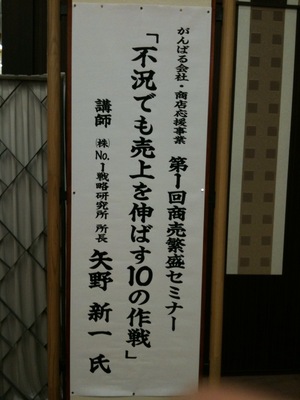 がんばる会社・商店応援事業
第1回商売繁盛セミナー
「不況でも売上を伸ばす10の作戦」
講師 ㈱No.1戦略研究所 所長 矢野 新一 氏